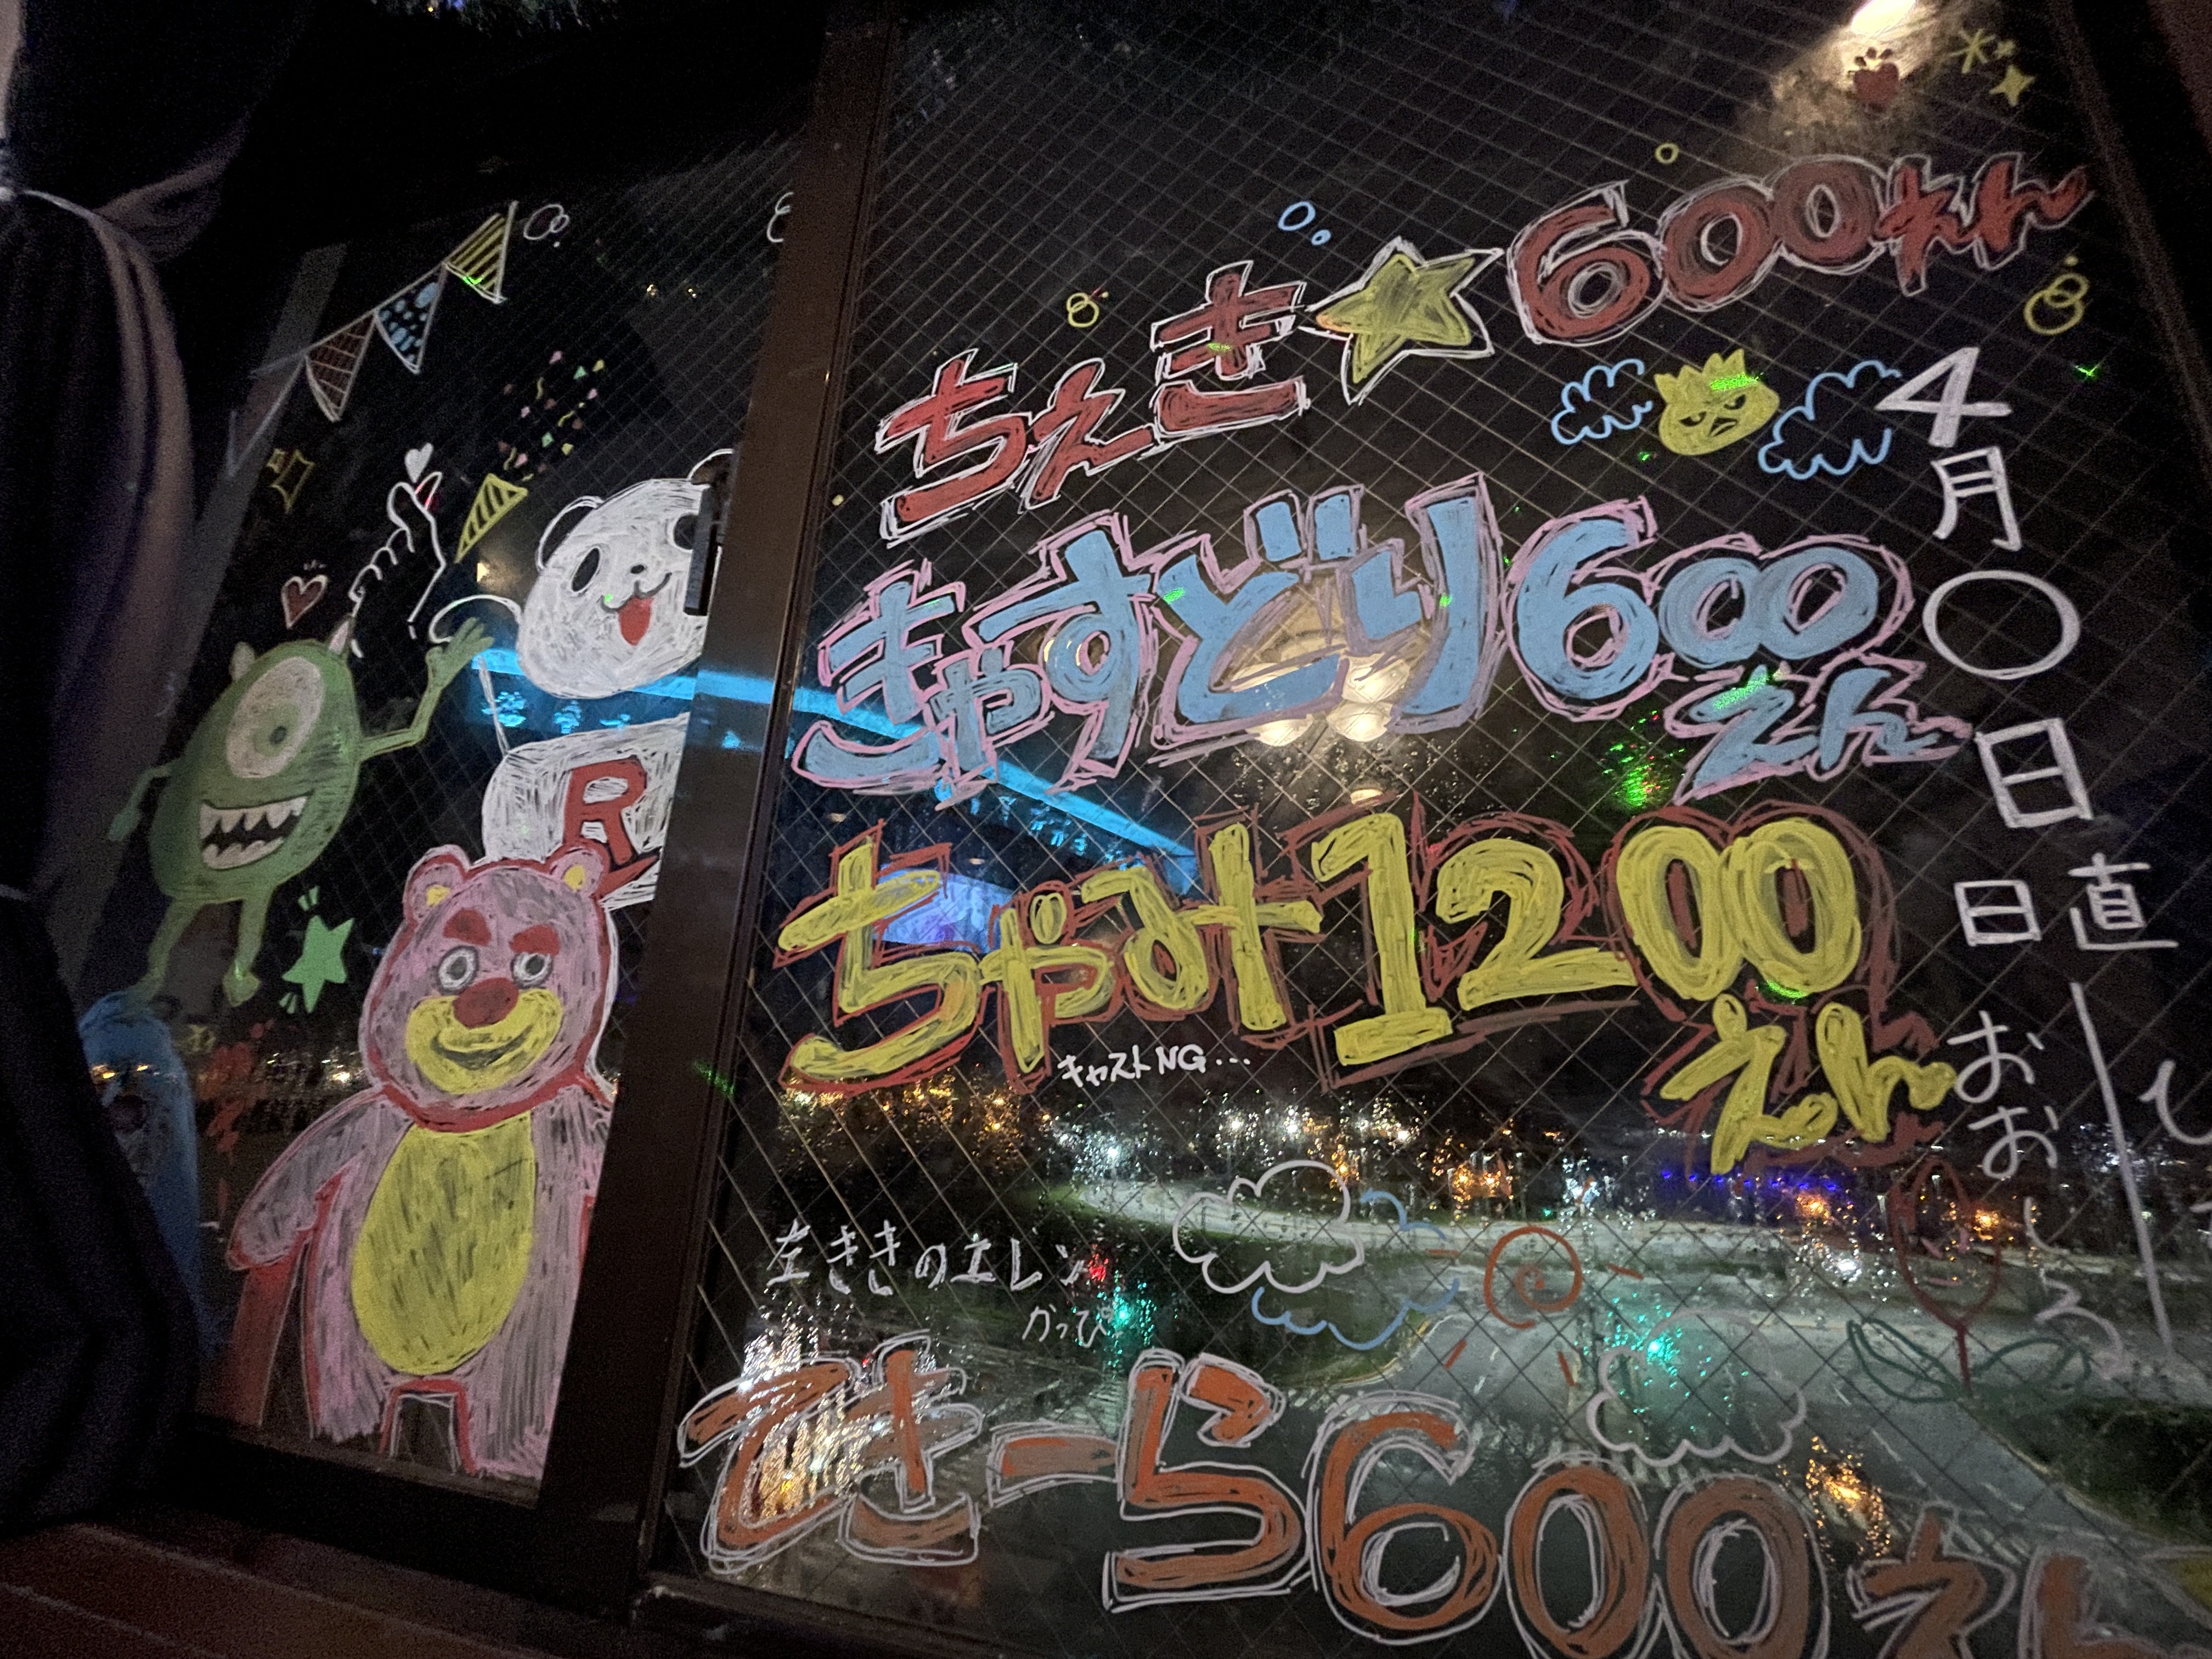 ちぇき★600えん
きゃすどり600
えん
ちゃみ1200
えん
キャストNG...
左ききのエレン
かっぴー
てきーら600えん
4月〇日
日直
おおしろ
R